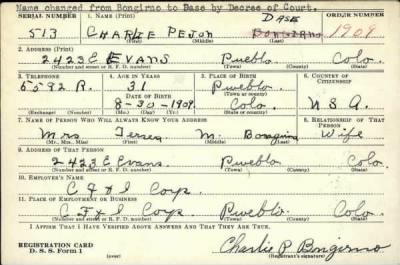 Name changed from Bongirno to Base by Decree of Court.
SERIAL NUMBER 1. NAME (Print) ORDER NUMBER
BASE
513 CHARLIE BONGIRNO 1909
(First) (Middle) (Last)
2. ADDRESS (Print)
2423 E EVANS Pueblo Colo.
(Number and street or R. F. D. number) (Town) (County) (State)
3. TELEPHONE 4. AGE IN YEARS 5. PLACE OF BIRTH 6. COUNTRY OF CITIZENSHIP
5592 R. 31 Pueblo
DATE OF BIRTH (Town or county)
8-30-1909 Colo. U S A.
(Exchange) (Number) (Mo.) (Day) (Yr.) (State or country)
7. NAME OF PERSON WHO WILL ALWAYS KNOW YOUR ADDRESS 8. RELATIONSHIP OF THAT PERSON
Mrs M. Bongirno Wife
(Mr., Mrs., Miss) (First) (Middle) (Last)
9. ADDRESS OF THAT PERSON
2423 E Evans. Pueblo Colo.
(Number and street or R. F. D. number) (Town) (County) (State)
10. EMPLOYER'S NAME
C F & I Corp.
11. PLACE OF EMPLOYMENT OR BUSINESS
C F & I Corp. Pueblo Colo.
(Number and street or R. F. D. number) (Town) (County) (State)
I AFFIRM THAT I HAVE VERIFIED ABOVE ANSWERS AND THAT THEY ARE TRUE.
REGISTRATION CARD
D. S. S. Form 1 Charlie P. Bongirno
(over) (Registrant's signature)